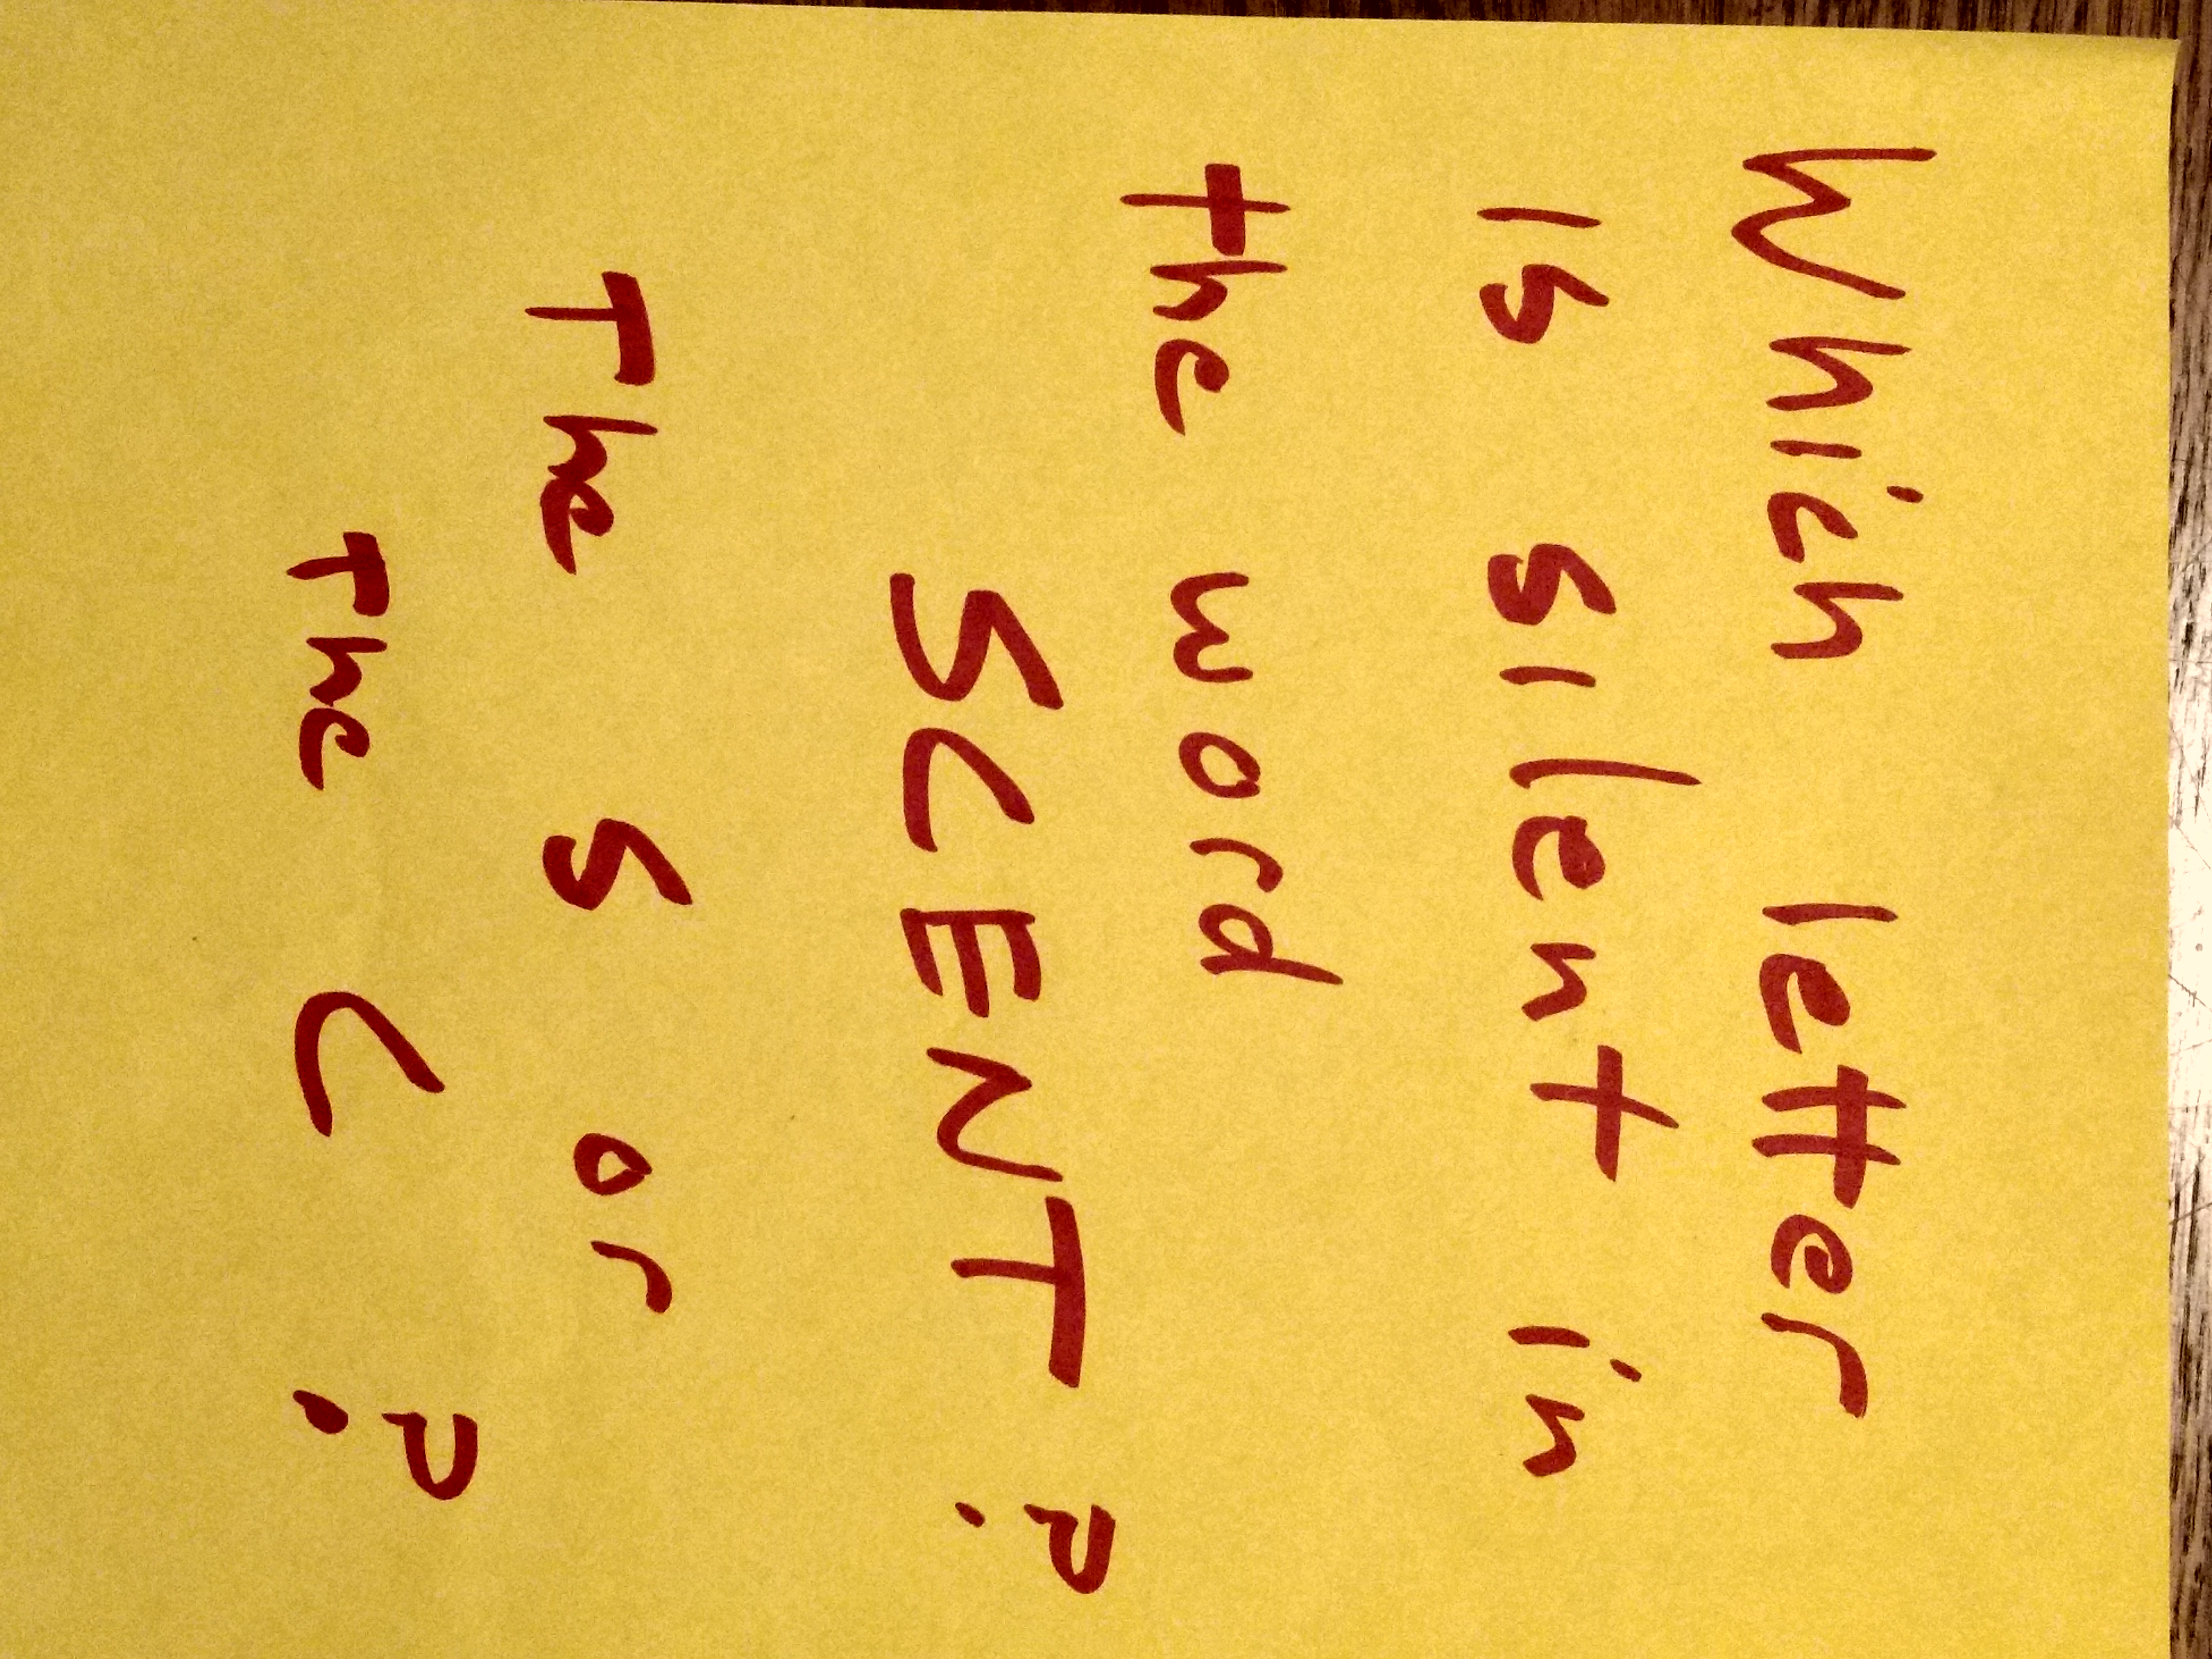 Which letter
is silent in
the word
SCENT?
The S or
The C?